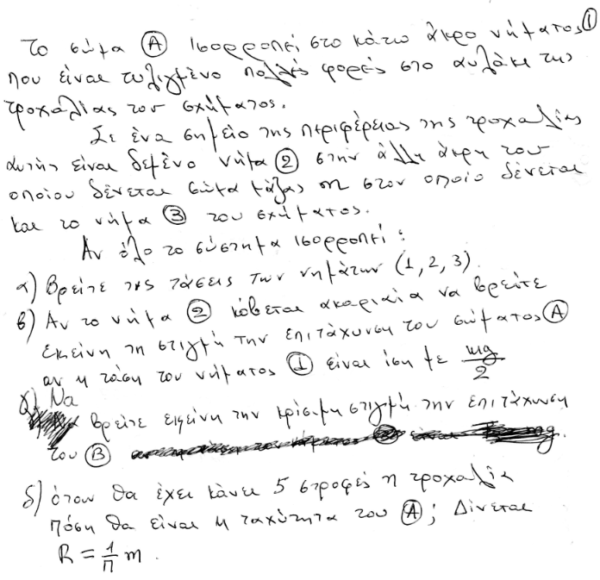 Το σώμα Ⓐ ισορροπεί στο κάτω άκρο νήματος ①
που είναι τυλιγμένο πολλές φορές στο αυλάκι της
τροχαλίας του σχήματος.
Σε ένα σημείο της περιφέρειας της τροχαλίας
αυτής είναι δεμένο νήμα ② στην άλλη άκρη του
οποίου δένεται σώμα μάζας m στον οποίο δένεται
και το νήμα ③ του σχήματος.
Αν όλο το σύστημα ισορροπεί :
α) Βρείτε τις τάσεις των νημάτων (1, 2, 3).
β) Αν το νήμα ② κόβεται ακαριαία να βρείτε
εκείνη τη στιγμή την επιτάχυνση του σώματος Ⓐ
αν η τάση του νήματος ① είναι ίση με mg/2
γ) Να
βρείτε εκείνη την κρίσιμη στιγμή την επιτάχυνση
του Ⓑ
δ) όταν θα έχει κάνει 5 στροφές η τροχαλία
πόση θα είναι η ταχύτητα του Ⓐ; Δίνεται
R = 1/π m.